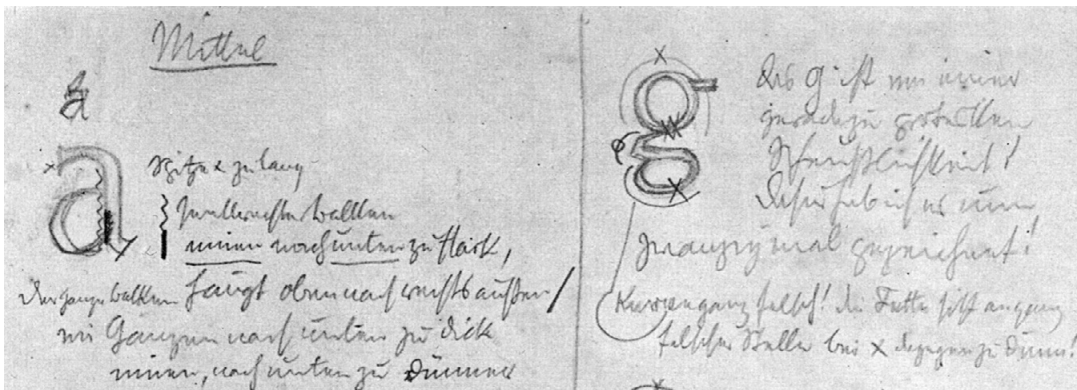 Mittel
a
a
Spitze x zu lang
senkrechter Balken
innen nach unten zu stark,
der ganze Balken hängt oben nach rechts außen /
im Ganzen nach unten zu dick
innen, nach unten zu dünner
g
das g ist von einer
geradezu grotesken
Scheußlichkeit!
Dafür habe ich es nun
zwanzigmal gezeichnet!
Kurve ganz falsch! die Fette sitzt an ganz
falscher Stelle bei x dagegen zu dünn!